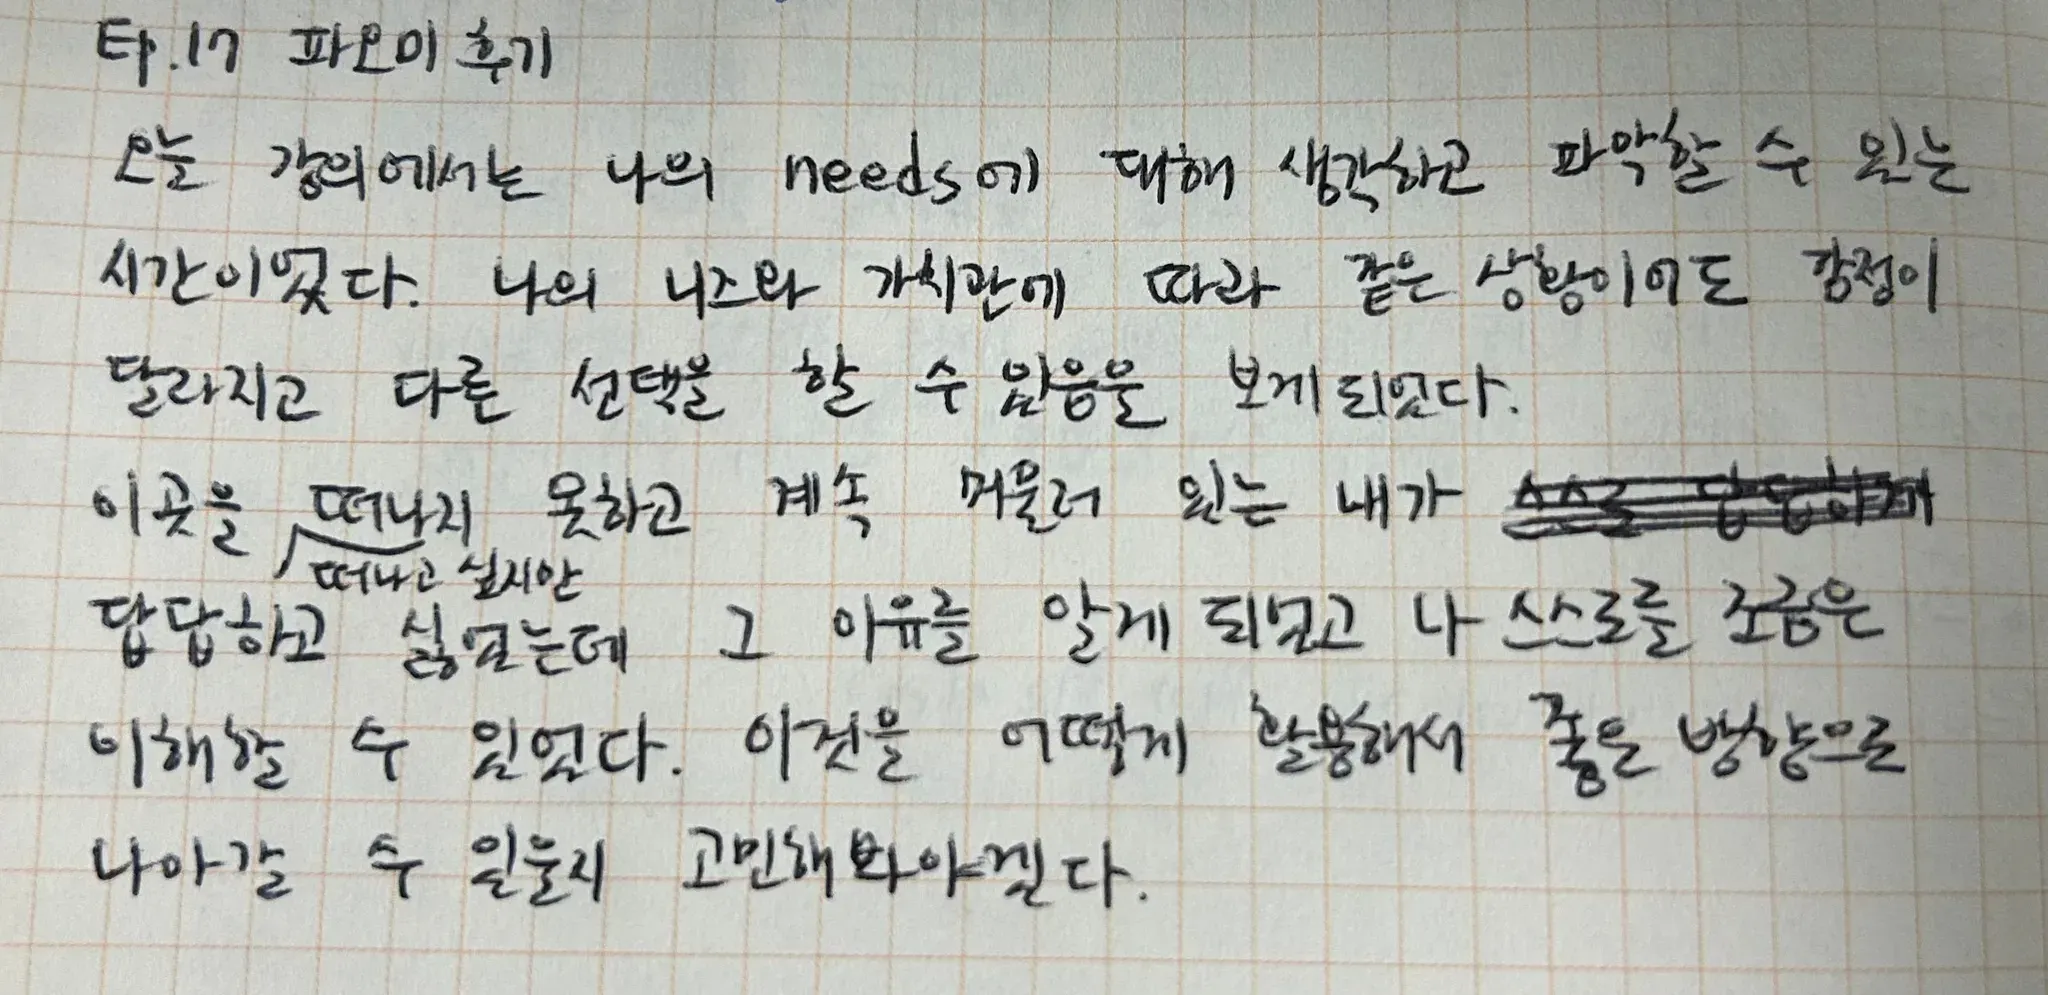 Ep.17 파오미 후기
오늘 강의에서는 나의 needs에 대해 생각하고 파악할 수 있는
시간이었다. 나의 니즈와 가치관에 따라 같은 상황이어도 감정이
달라지고 다른 선택을 할 수 있음을 보게되었다.
이곳을 떠나지 못하고 계속 머물러 있는 내가 스스로 답답하게
떠나고 싶지만
답답하고 싫었는데 그 이유를 알게 되었고 나 스스로를 조금은
이해할 수 있었다. 이것을 어떻게 활용해서 좋은 방향으로
나아갈 수 있을지 고민해봐야겠다.